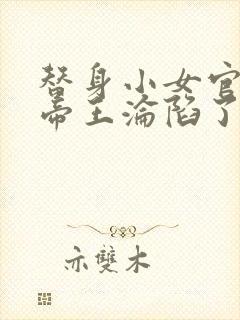 替身小女官
帝王淪陷了
亦雙木